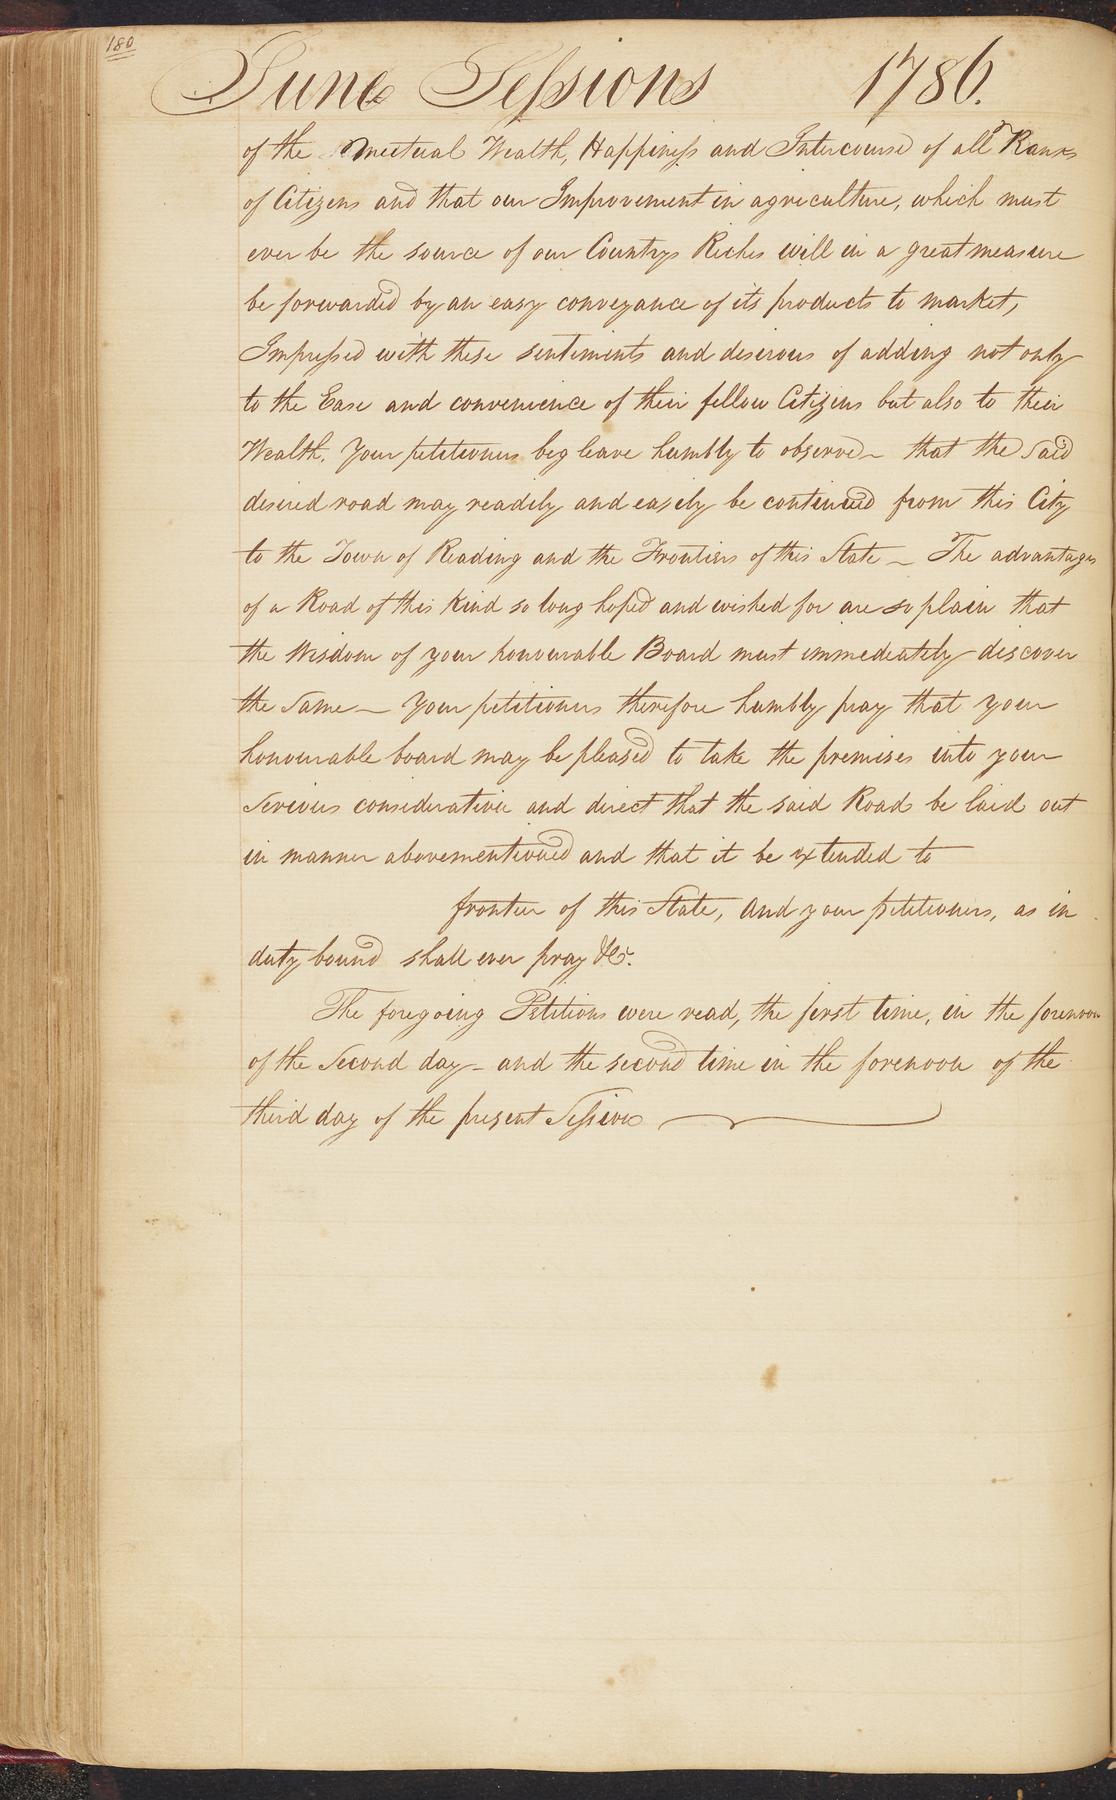 180
June Sessions 1786.
of the mutual Wealth, Happiness and Intercourse of all Ranks
of Citizens and that our Improvement in agriculture, which must
ever be the source of our Countrys Riches will in a great measure
be forwarded by an easy conveyance of its products to market,
Impressed with these sentiments and desirous of adding not only
to the Ease and convenience of their fellow Citizens but also to their
Wealth. Your petitioners beg leave humbly to observe — that the said
desired road may readily and easily be continued from this City
to the Town of Reading and the Frontiers of this State — The advantages
of a Road of this kind so long hoped and wished for are so plain that
the Wisdom of your honourable Board must immediately discover
the same — Your petitioners therefore humbly pray that your
honourable board may be pleased to take the premises into your
serious consideration and direct that the said Road be laid out
in manner abovementioned and that it be extended to
frontier of this State, And your petitioners, as in
duty bound shall ever pray &c.
The foregoing Petitions were read, the first time, in the forenoon
of the second day — and the second time in the forenoon of the
third day of the present Session